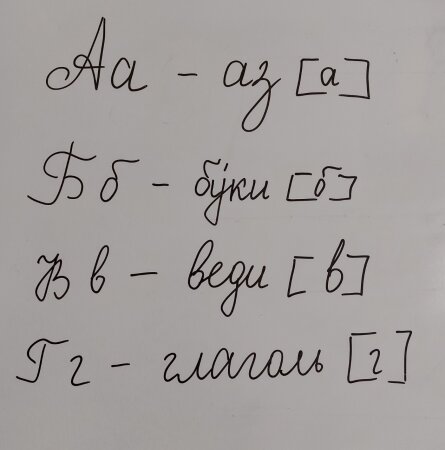 Аа - аз [а]
Бб - бу́ки [б]
Вв - веди [в]
Гг - глаголь [г]